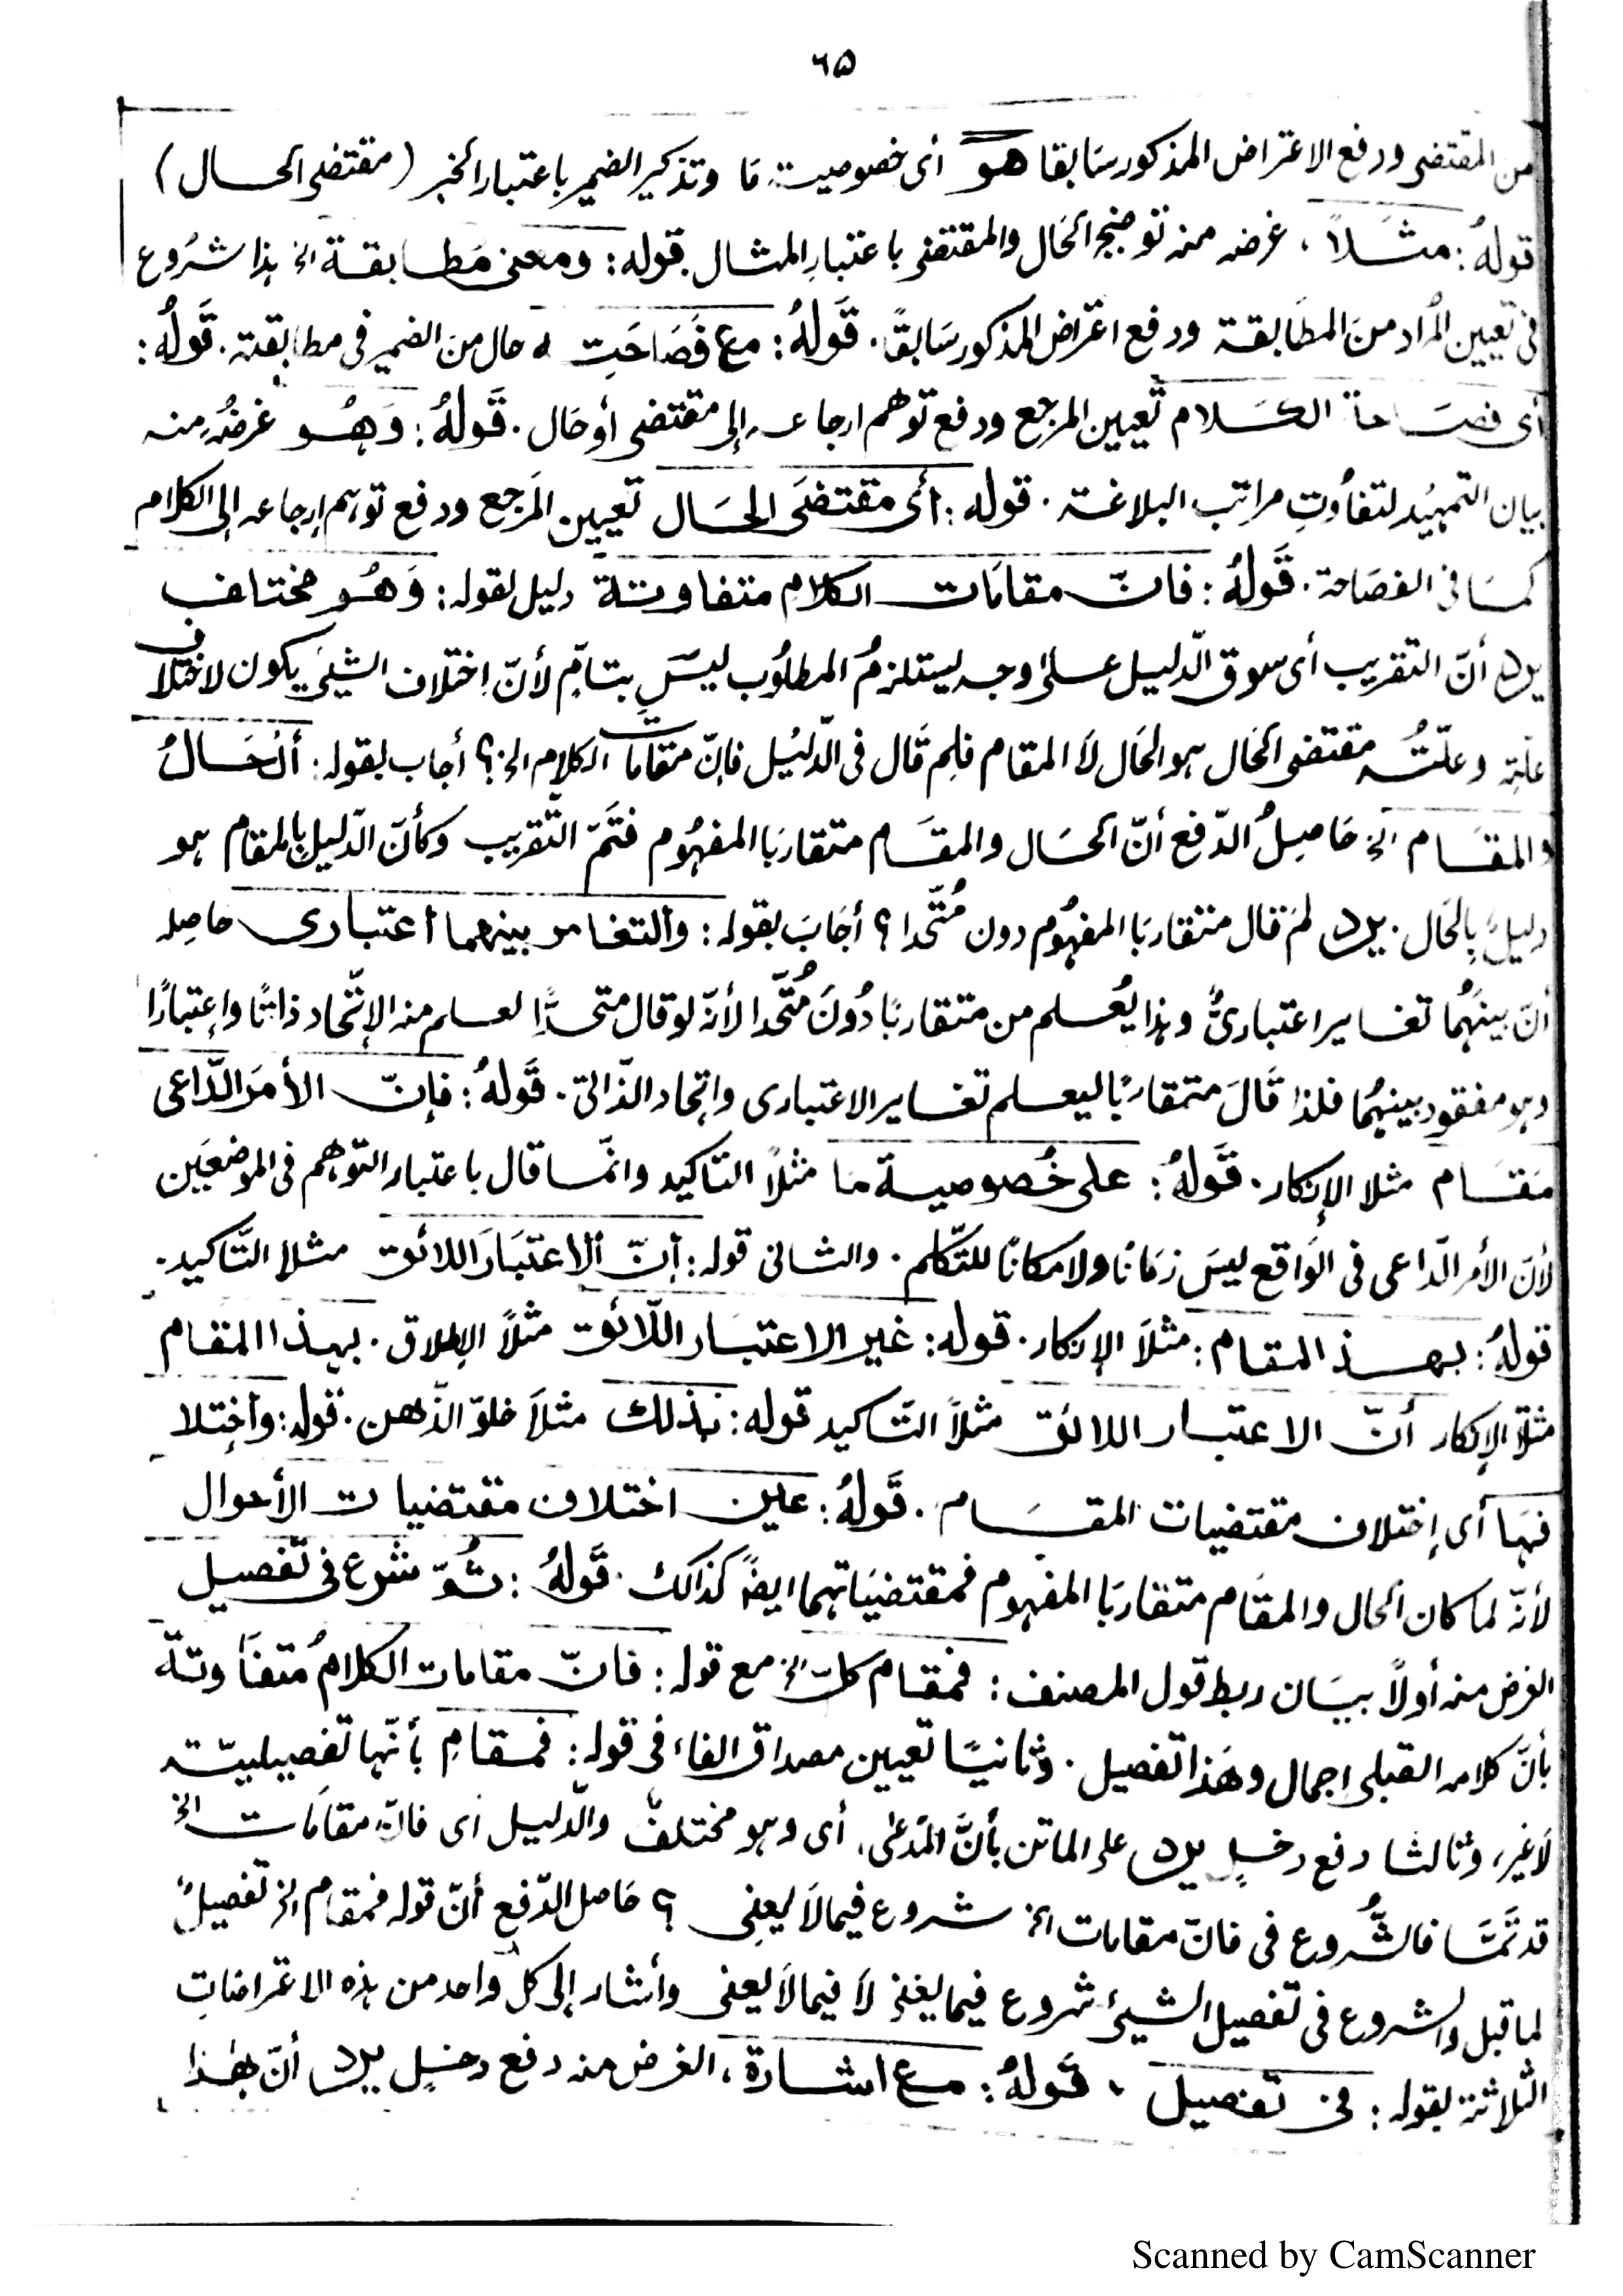 ٦٥
من المقتضى ودفع الاعتراض المذكور سَابقا هو أى خصوصيت مَا وتذكير الضمير باعتبار الخبر (مقتضى الحال)
قولهُ: مثلاً، غرضه منه توضيح الحَال والمقتضى باعتبارِ المثال. قوله: ومعنى مَطابقة الخ ہذا شرُوع
فى تعيين المُراد منَ المطَابقة ودفع اعتراض المذكور سَابقًا. قَولهُ: مع فَصَاحَتِه حال من الضمير فى مطابقتہ. قَولُهُ:
أى فصَاحة الكَلام تعيين المرجع ودفع توهم ارجاعہ إلى مقتضى أو حَال. قَولهُ: وَهُو غرضُہ منہ
بيان التمہيد لتفاوُتِ مراتب البلاغة. قوله: أى مقتضَى الحَال تعيين المَرجع ودفع توہم إرجاعہ إلى الكلام
كمَا فى الفصَاحة. قَولهُ: فانّ مقامَات الكلام متفاوتة دليل لقولہ: وَهُو مختلف
يرد أنّ التقريب أى سوق الدّليل علىٰ وجہ يستلزمُ المطلوُب ليسَ بتامِّ لأنّ إختلاف الشيئ يكون لاختلاف
علّتہ وعلّتُہ مقتضى الحَال ہو الحَال لاَ المقام فلِم قَال فى الدّليْل فإنّ مقامات الكلام الخ؟ أجاب بقولہ: ألحَالُ
والمقَام الخ حَاصِلُ الدّفع أنّ الحَال والمقَام متقاربَا المفہُوم فتَمّ التّقريب وكأنّ الدّليل بالمقام ہو
دليلٌ بِالحَال. يرد لمَ قال متقاربَا المفہُوم دون مُتّحدا؟ أجَابَ بقولہ: والتغاير بينهما اعتبارى حاصِلہ
أنّ بينَہُما تغاير اعتبارىٌّ وہذا يُعلم من متقاربًا دُونَ مُتّحدا لأنّہ لو قال متحدًّا لعلم منہ الإتّحاد ذاتًا وإعتبارًا
وہو مفقود بينہُما فلذا قَالَ متقاربًا ليعلم تغاير الاعتبارى واتحاد الذّاتىّ. قَولهُ: فإنّ الأمرَ الدّاعى
مَقَام مثلا الإنكار. قَولهُ: على خُصوصية ما مثلاً التاكيد وانّما قال باعتبار التوهم فى الموضعَين
لأنّ الأمر الدّاعى فى الوَاقع ليسَ زمَانًا ولا مكانًا للتّكلم. والثانى قولہ: إنّ الاعتبَارَ اللائق مثلا التّاكيد.
قولهُ: بهذا المقام: مثلاَ الإنكار. قوله: غير الاعتبَار اللّائق مثلاً الإطلاق. بہذا المقام
مثلاً الإنكار أنّ الاعتبار اللائق مثلاً التّاكيد قوله: بذلك مثلاَ خلوّ الذّهن. قولہ: وأختلا
فہَا أى إختلاف مقتضيات المقَام. قَولهُ: عين اختلاف مقتضيات الأحوال
لأنّہ لما كان الحال والمقَام متقاربَا المفہوم فمقتضيَاتہما ايضًا كذالك. قَولهُ: ثُمّ شرع فى تفصيل
الغرض منہ أولاً بيَان ربط قول المصنف: فمقام كلّ الخ مع قولہ: فانّ مقامات الكلامُ متفَاوتة
بأنّ كلامہ القبلى اجمال وهَذا تفصيل. وثانيًا تعيين مصداق الفاء فى قولہ: فمقام بأنّہا تفصيليّتہ
لاَغير، وثالثا دفع دخلٍ يرد على الماتن بأنَّ المدّعىٰ، أى وہو مختلفٌ والدّليل أى فانّ مقامَات الخ
قد تَمَّا فالشُّروع فى فانّ مقامات الخ شروع فيما لاَ يعنِى؟ حَاصل الدّفع أنّ قولہ فمقام الخ تفصيلٌ
لما قبل والشروع فى تفصيل الشيئ شروع فيما يعنى لاَ فيما لاَ يعنى وأشار إلى كل واحد من ہذہ الاعتراضاتِ
الثلاثۃ بقولہ: فى تفصيل، قَولهُ: مع اشارة، الغرض منہ دفع دخلٍ يرد أنّ بهٰذا
Scanned by CamScanner